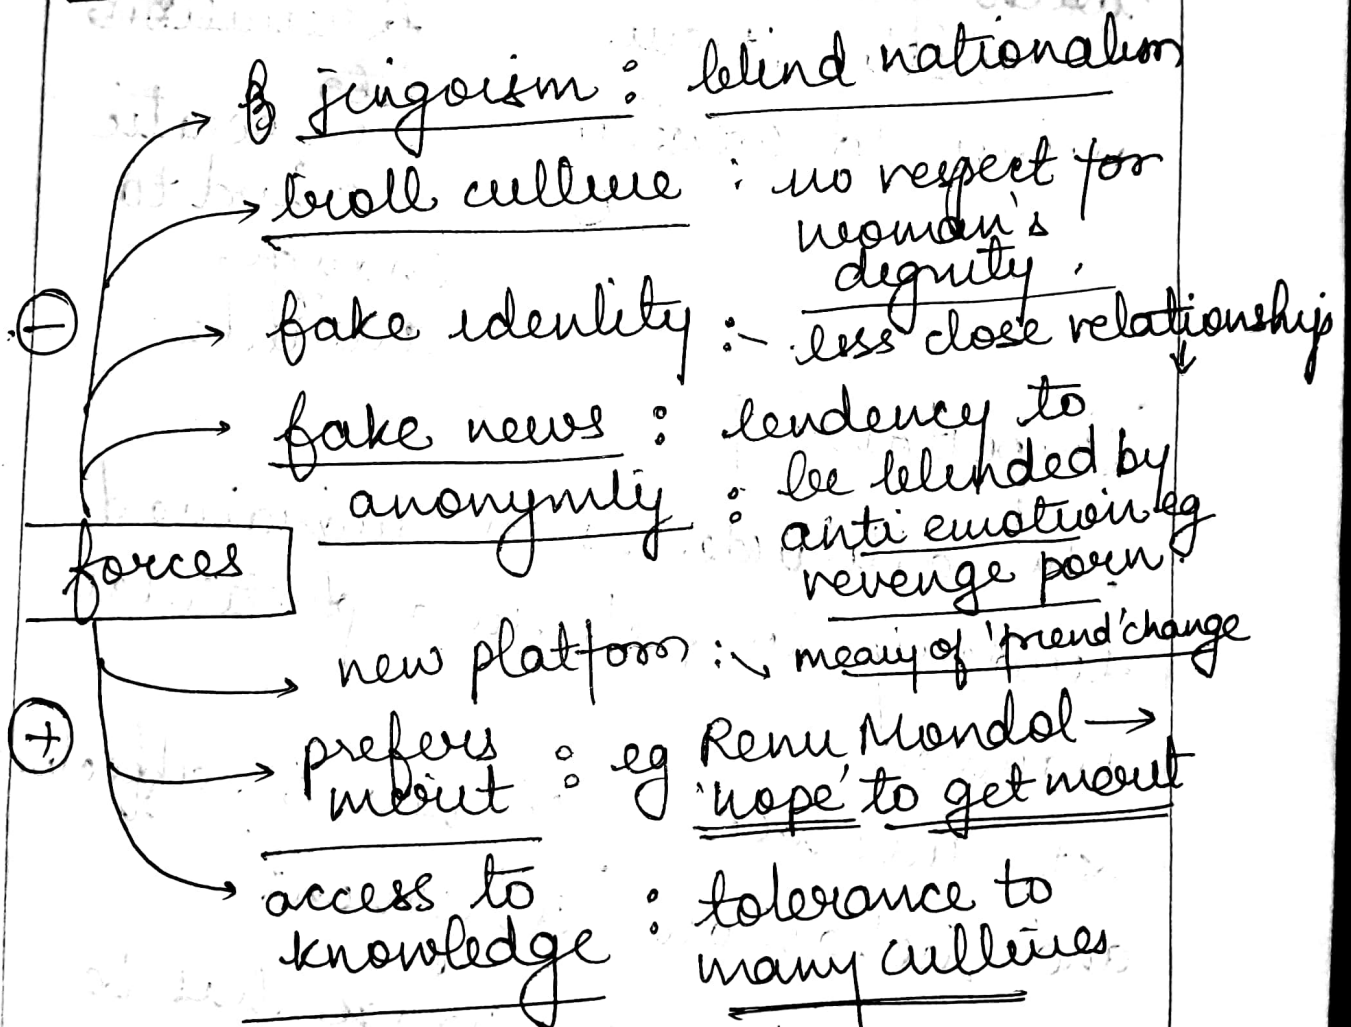 jingoism : blind nationalism
troll culture : no respect for
woman's
dignity.
fake identity :- less close relationship ↓
fake news : tendency to
be blinded by
anonymity : anti emotion eg
revenge porn.
forces
new platform :→ meaning of 'friend' change
prefers : eg Renu Mondol →
merit 'hope' to get merit
access to : tolerance to
knowledge many cultures
⊖
⊕